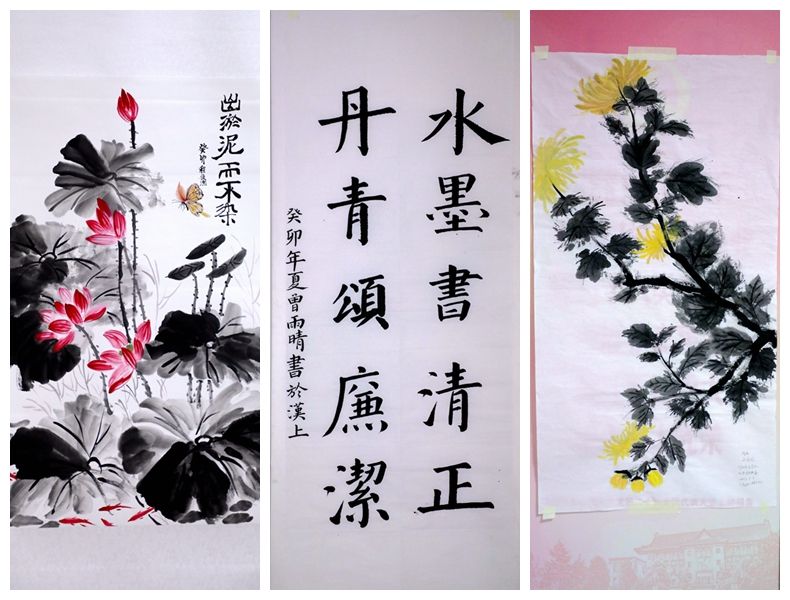 出淤泥而不染
水墨書清正
丹青頌廉潔
癸卯年夏曾雨晴書於漢上